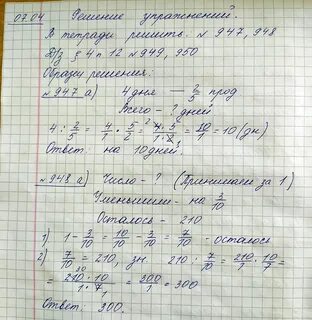 07.04 Решение упражнений.
В тетради решить. №947, 948
Д/з § 4 п 12 №949, 950
Образец решения:
№947 а) 4 дня — 2/5 прод
Всего - ? дней
4 : 2/5 = 4/1 · 5/2 = 4·5/1·2 = 10/1 = 10 (дн)
Ответ: на 10 дней.
№948 а) Число - ? (Принимаем за 1)
Уменьшили - на 3/10
Осталось - 210
1) 1 - 3/10 = 10/10 - 3/10 = 7/10 - осталось
2) 7/10 = 210, зн. 210 : 7/10 = 210/1 · 10/7 =
= 210·10/1·7 = 300/1 = 300
Ответ: 300.